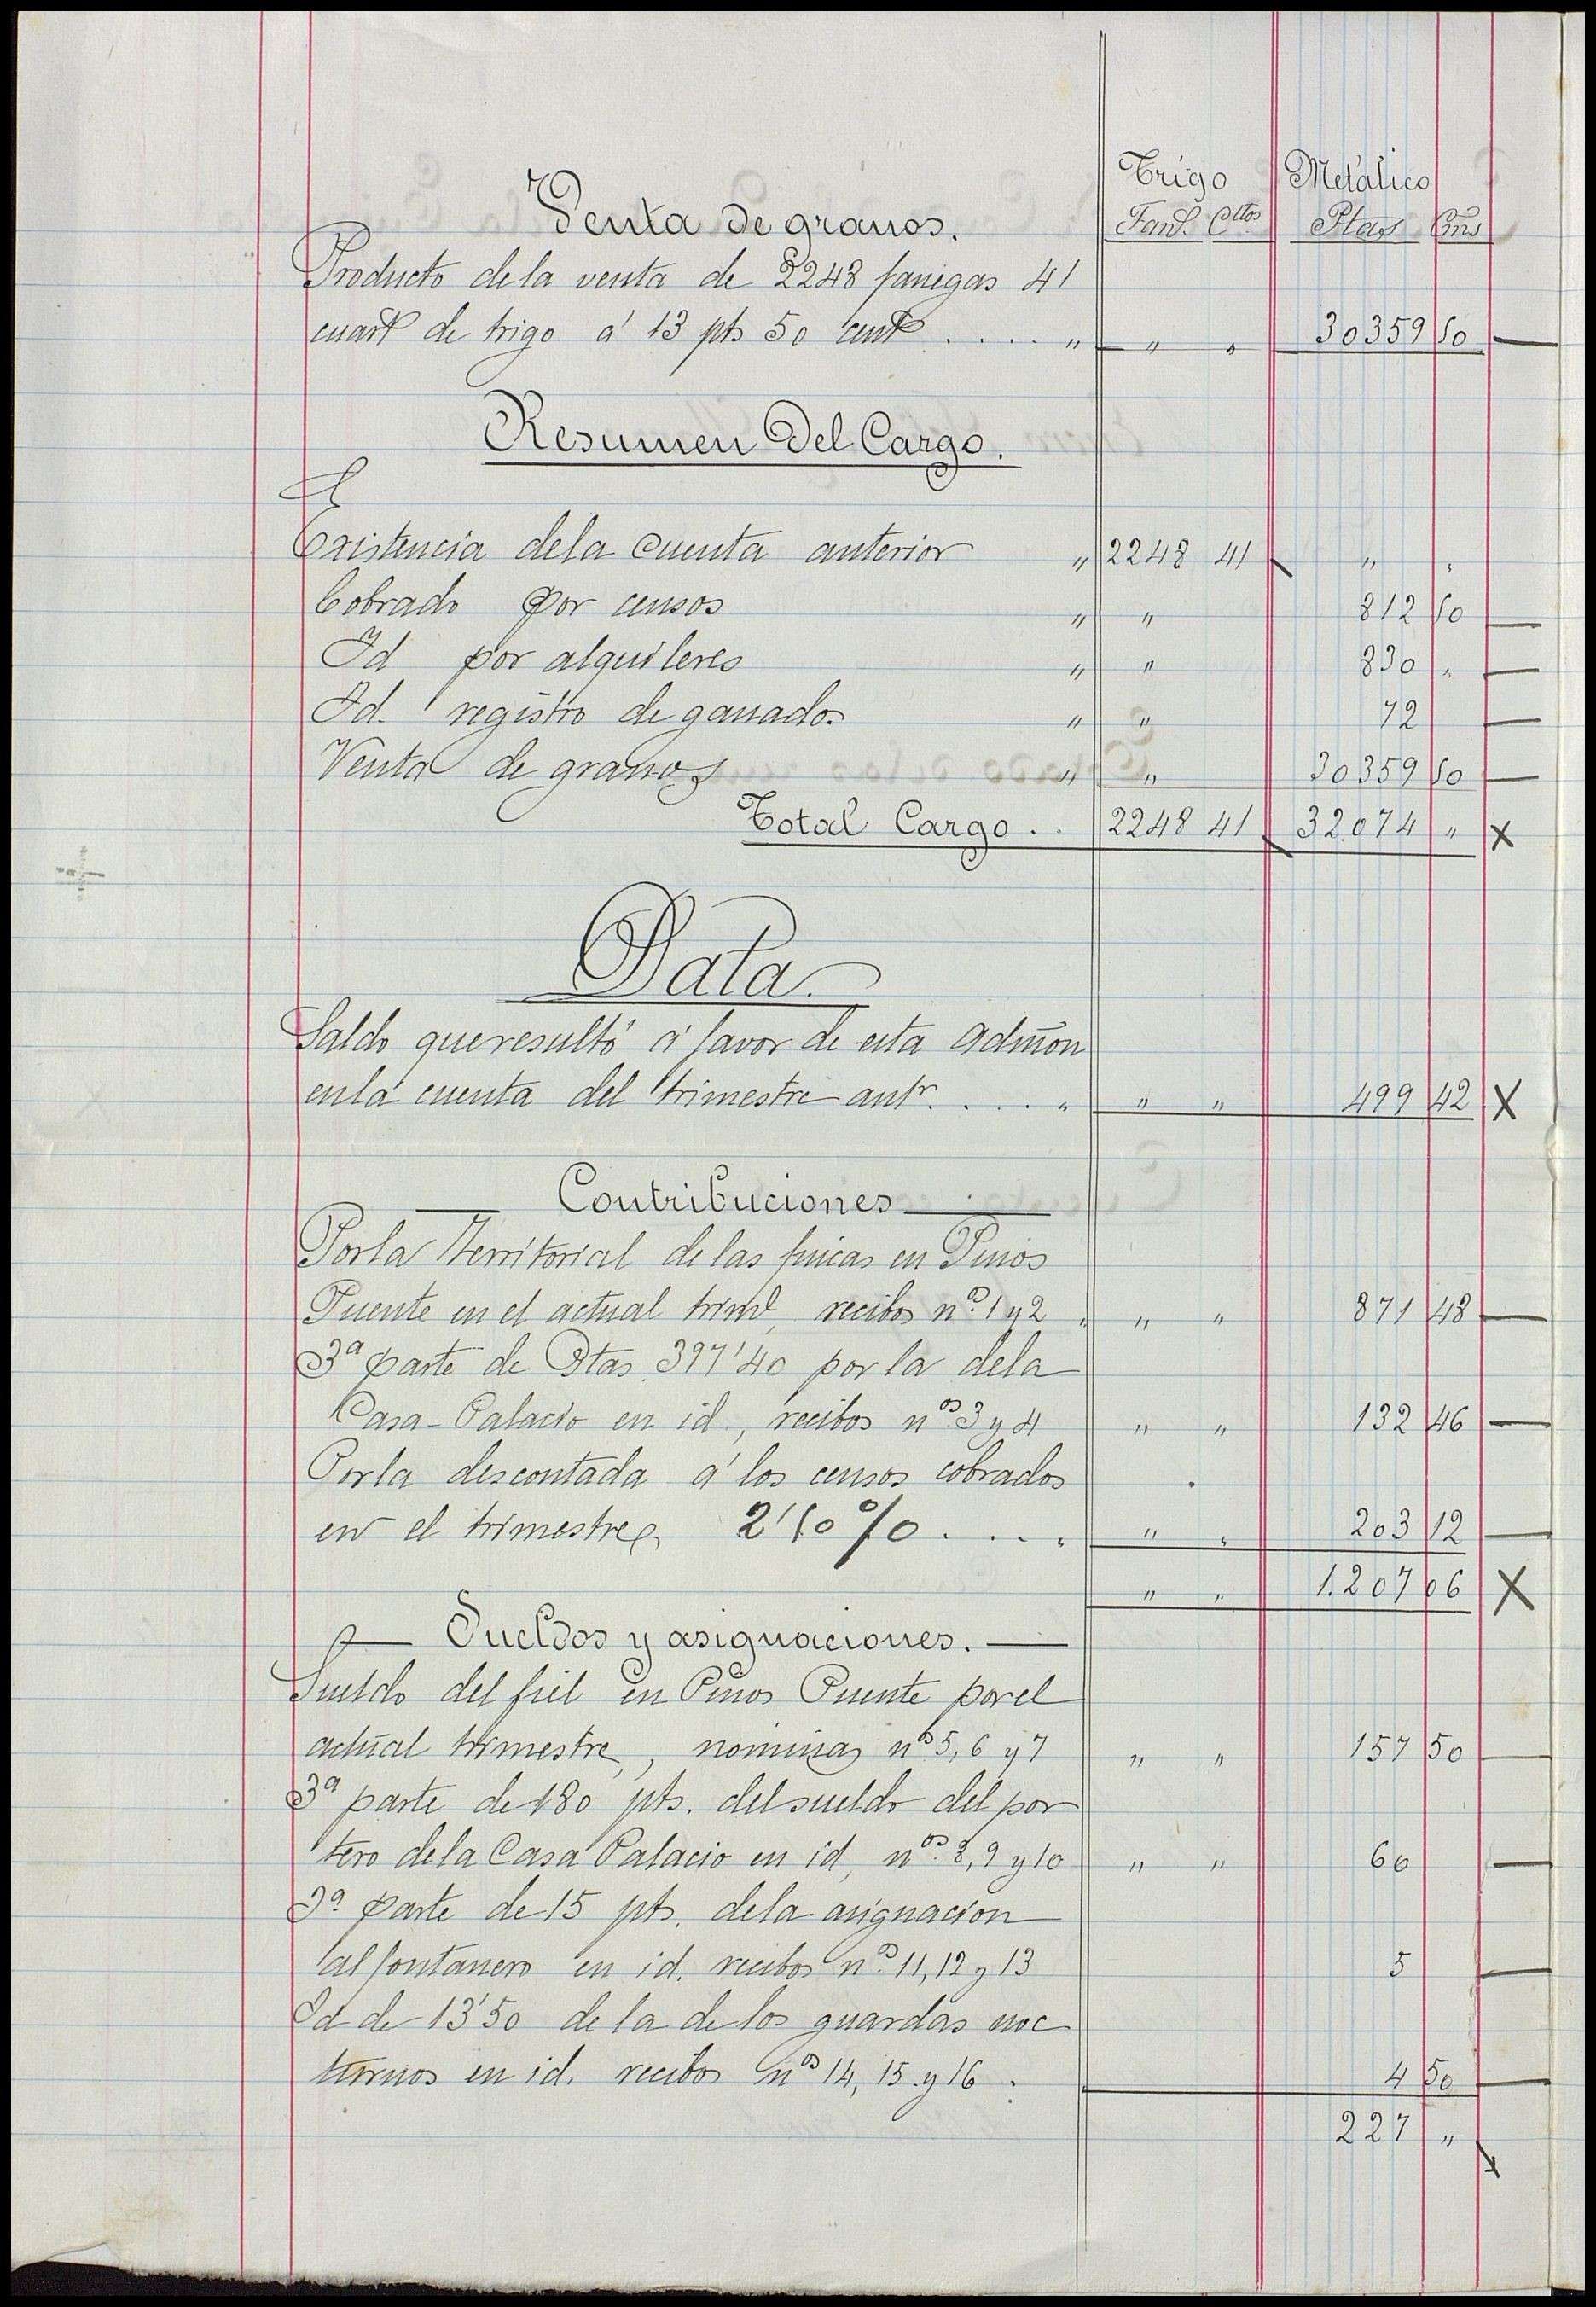 Trigo Metálico
Venta de granos. Fans. Cttos Ptas Cms
Producto de la venta de 2248 fanegas 41
cuartˢ de trigo á 13 pts 50 centˢ . . . . " " " 30359 50
Resumen Del Cargo.
Existencia dela cuenta anterior " 2248 41 " "
Cobrado por censos " " 812 50
Id por alquileres " " 830 "
Id. registro de ganados " " 72
Venta de granos " " 30359 50
Total Cargo . . 2248 41 32.074 "
Data.
Saldo que resultó á favor de esta Admōn
en la cuenta del trimestre antʳ. . . . . " " " 499 42
Contribuciones
Por la territorial de las fincas en Pinos
Puente en el actual trimᵉ, recibos nᵒˢ 1 y 2 " " " 871 48
3ª parte de Ptas. 397'40 por la dela
Casa-Palacio en id., recibos nᵒˢ 3 y 4 " " 132 46
Por la descontada á los censos cobrados
en el trimestre 2'50% . . . . " " 203 12
" " 1.207 06
Sueldos y asignaciones.
Sueldo del fiel en Pinos Puente por el
actual trimestre, nominas nᵒˢ 5, 6 y 7 " " 157 50
3ª parte de 180 pts. del sueldo del por
tero dela Casa Palacio en id, nᵒˢ 8, 9 y 10 " " 60
3ª parte de 15 pts. dela asignacion
al fontanero en id. recibos nᵒˢ 11, 12 y 13 5
Id de 13'50 de la de los guardas noc
turnos en id. recibos nᵒˢ 14, 15 y 16 . 4 50
227 "